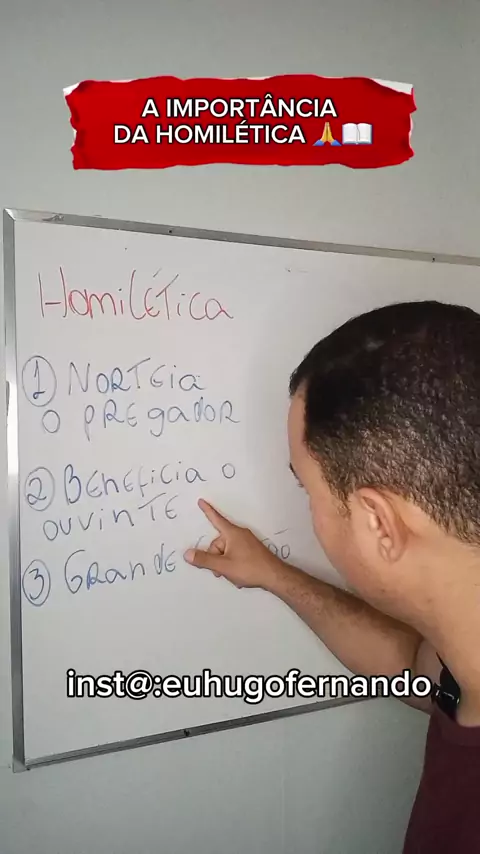 A IMPORTÂNCIA
DA HOMILÉTICA 🙏📖
HomiLÉTica
① NORTEia
o pREgadoR
② BENEficia o
ouvinTE
③ GRanDE
inst@:euhugofernando